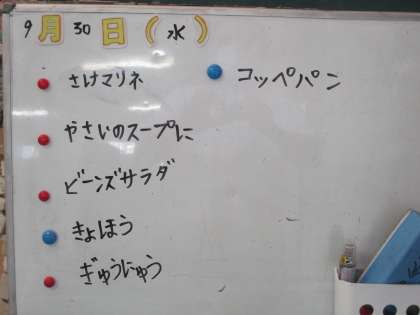 9月30日(水)
さけマリネ
やさいのスープに
ビーンズサラダ
きょほう
ぎゅうにゅう
コッペパン